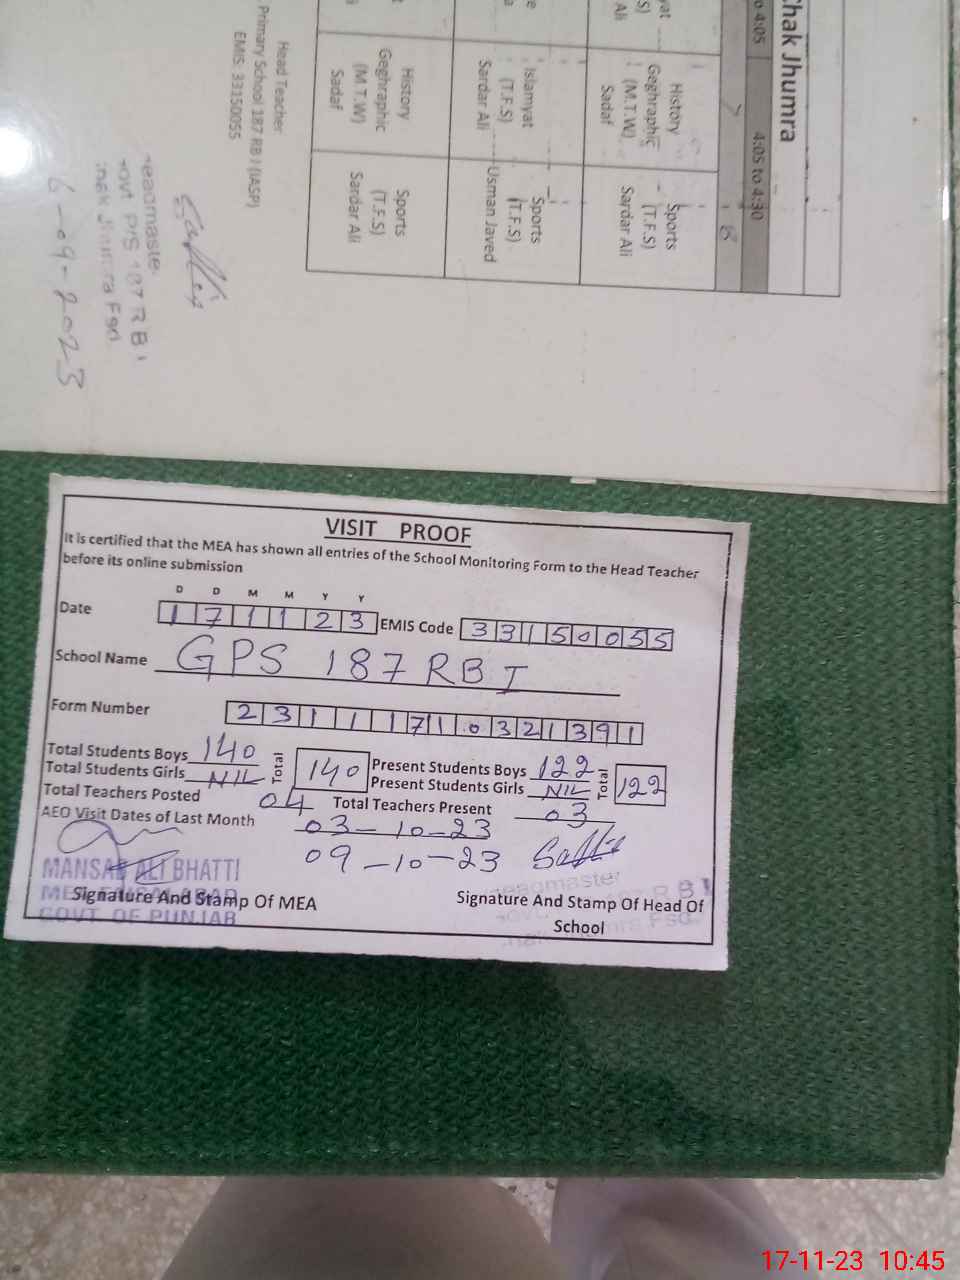 Chak Jhumra
4:05 to 4:30
7
8
History
Geghraphic
(M.T.W)
Sadaf
Sports
(T.F.S)
Sardar Ali
Islamyat
(T.F.S)
Sardar Ali
Sports
(T.F.S)
Usman Javed
History
Geghraphic
(M.T.W)
Sadaf
Sports
(T.F.S)
Sardar Ali
Head Teacher
Primary School 187 RB I (IASP)
EMIS: 33150055
6-09-2023
VISIT PROOF
It is certified that the MEA has shown all entries of the School Monitoring Form to the Head Teacher
before its online submission
D D M M Y Y
Date 171123 EMIS Code 33150055
School Name GPS 187 RB I
Form Number 23111710321391
Total Students Boys 140 Total 140 Present Students Boys 122 Total 122
Total Students Girls NIL Present Students Girls NIL
Total Teachers Posted 04 Total Teachers Present 03
AEO Visit Dates of Last Month 03-10-23
09-10-23
MANSAB ALI BHATTI
MEA FAISALABAD
GOVT. OF PUNJAB
Signature And Stamp Of MEA
Signature And Stamp Of Head Of
School
17-11-23 10:45